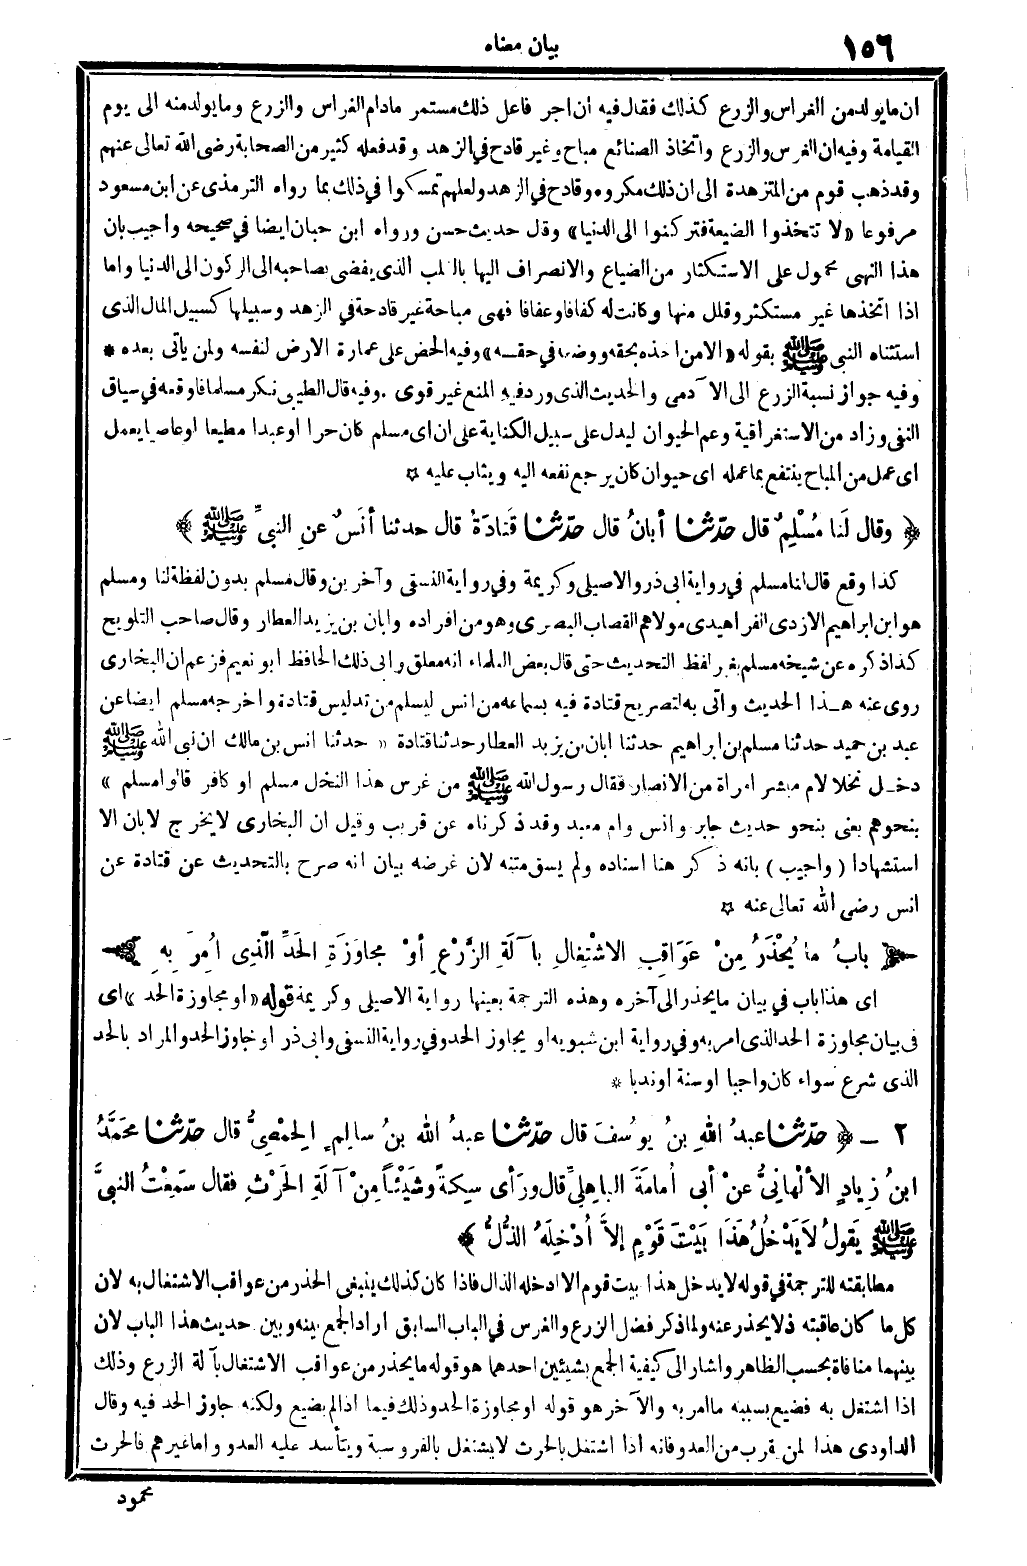 ١٥٦
بيان معناه
ان ما يولد من الغراس والزرع كذلك فقال فيه ان اجر فاعل ذلك مستمر مادام الغراس والزرع وما يولد منه الى يوم
القيامة وفيه ان الغرس والزرع واتخاذ الصنائع مباح وغير قادح في الزهد وقد فعله كثير من الصحابة رضى الله تعالى عنهم
وقد ذهب قوم من المتزهدة الى ان ذلك مكروه وقادح في الزهد ولعلهم تمسكوا في ذلك بما رواه الترمذى عن ابن مسعود
مرفوعا «لا تتخذوا الضيعة فتركنوا الى الدنيا» وقال حديث حسن ورواه ابن حبان ايضا في صحيحه واجيب بان
هذا النهى محمول على الاستكثار من الضياع والانصراف اليها بالقلب الذى يفضى بصاحبه الى الركون الى الدنيا واما
اذا اتخذها غير مستكثر وقلل منها وكانت له كفافا وعفافا فهى مباحة غير قادحة في الزهد وسبيلها كسبيل المال الذى
استثناه النبى ﷺ بقوله «الا من اخذه بحقه ووضعه في حقه» وفيه الحض على عمارة الارض لنفسه ولمن يأتى بعده *
وفيه جواز نسبة الزرع الى الآدمى والحديث الذى ورد فيه المنع غير قوى . وفيه قال الطيبى نكر مسلما فاوقعه في سياق
النفى وزاد من الاستغراقية وعم الحيوان ليدل على سبيل الكناية على ان اى مسلم كان حرا او عبدا مطيعا او عاصيا يعمل
اى عمل من المباح ينتفع بما عمله اى حيوان كان يرجع نفعه اليه ويثاب عليه ✩
﴿ وقال لَنا مُسْلِمٌ قال حدّثنا أبانُ قال حدّثنا قَتادَةُ قال حدثنا أنَسٌ عنِ النبيِّ ﷺ ﴾
كذا وقع قال لنا مسلم في رواية ابى ذر والاصيلى وكريمة وفي رواية النسفى وآخرين وقال مسلم بدون لفظة لنا ومسلم
هو ابن ابراهيم الازدى الفراهيدى مولاهم القصاب البصرى وهو من افراده وابان بن يزيد العطار وقال صاحب التلويح
كذا ذكره عن شيخه مسلم بغير لفظ التحديث حتى قال بعض العلماء انه معلق وابى ذلك الحافظ ابو نعيم فزعم ان البخارى
روى عنه هـذا الحديث واتى به لتصريح قتادة فيه بسماعه من انس ليسلم من تدليس قتادة واخرجه مسلم ايضا عن
عبد بن حميد حدثنا مسلم بن ابراهيم حدثنا ابان بن يزيد العطار حدثنا قتادة « حدثنا انس بن مالك ان نبى الله ﷺ
دخـل نخلا لام مبشر امرأة من الانصار فقال رسول الله ﷺ من غرس هذا النخل مسلم او كافر قالوا مسلم »
بنحوهم يعنى بنحو حديث جابر وانس وام معبد وقد ذكرناه عن قريب وقيل ان البخارى لا يخرج لابان الا
استشهادا ( واجيب ) بانه ذكر هنا اسناده ولم يسق متنه لان غرضه بيان انه صرح بالتحديث عن قتادة عن
انس رضى الله تعالى عنه ✩
بابُ ما يُحْذَرُ مِنْ عَوَاقِبِ الاشْتِغالِ بآلَةِ الزَّرْعِ أوْ مجاوَزَةِ الحَدِّ الَّذِى أُمِرَ بِهِ
اى هذا باب في بيان ما يحذر الى آخره وهذه الترجمة بعينها رواية الاصيلى وكريمة قوله «او مجاوزة الحد» اى
فى بيان مجاوزة الحد الذى امر به وفي رواية ابن شبويه او يجاوز الحد وفي رواية النسفى وابى ذر او جاوز الحد والمراد بالحد
الذى شرع سواء كان واجبا او سنة او ندبا *
٢ ـ ﴿ حدّثنا عبدُ اللهِ بنُ يوسُفَ قال حدّثنا عبدُ الله بنُ سالِمٍ الحِمْصِيُّ قال حدّثنا محَمَّدُ
ابنُ زِيادٍ الألْهانِيُّ عنْ أبى أُمامَةَ الباهِلِيِّ قال ورَأى سِكةً وشَيْئاً مِنْ آلَةِ الحَرْثِ فقال سَمِعْتُ النبيَّ
ﷺ يَقولُ لاَيَدْخُلُ هَذَا بَيْتَ قَوْمٍ إلاَّ أُدْخِلَهُ الذُّلُّ ﴾
مطابقته للترجمة في قوله لا يدخل هذا بيت قوم الا ادخله الذال فاذا كان كذلك ينبغى الحذر من عواقب الاشتغال به لان
كل ما كان عاقبته ذلا يحذر عنه ولما ذكر فضل الزرع والغرس في الباب السابق اراد الجمع بينه وبين حديث هذا الباب لان
بينهما منافاة بحسب الظاهر واشار الى كيفية الجمع بشيئين احدهما هو قوله ما يحذر من عواقب الاشتغال بآلة الزرع وذلك
اذا اشتغل به فضيع بسببه ما امر به والآخر هو قوله او مجاوزة الحد وذلك فيما اذا لم يضيع ولكنه جاوز الحد فيه وقال
الداودى هذا لمن قرب من العدو فانه اذا اشتغل بالحرث لا يشتغل بالفروسية ويتأسد عليه العدو واما غيرهم فالحرث
محمود